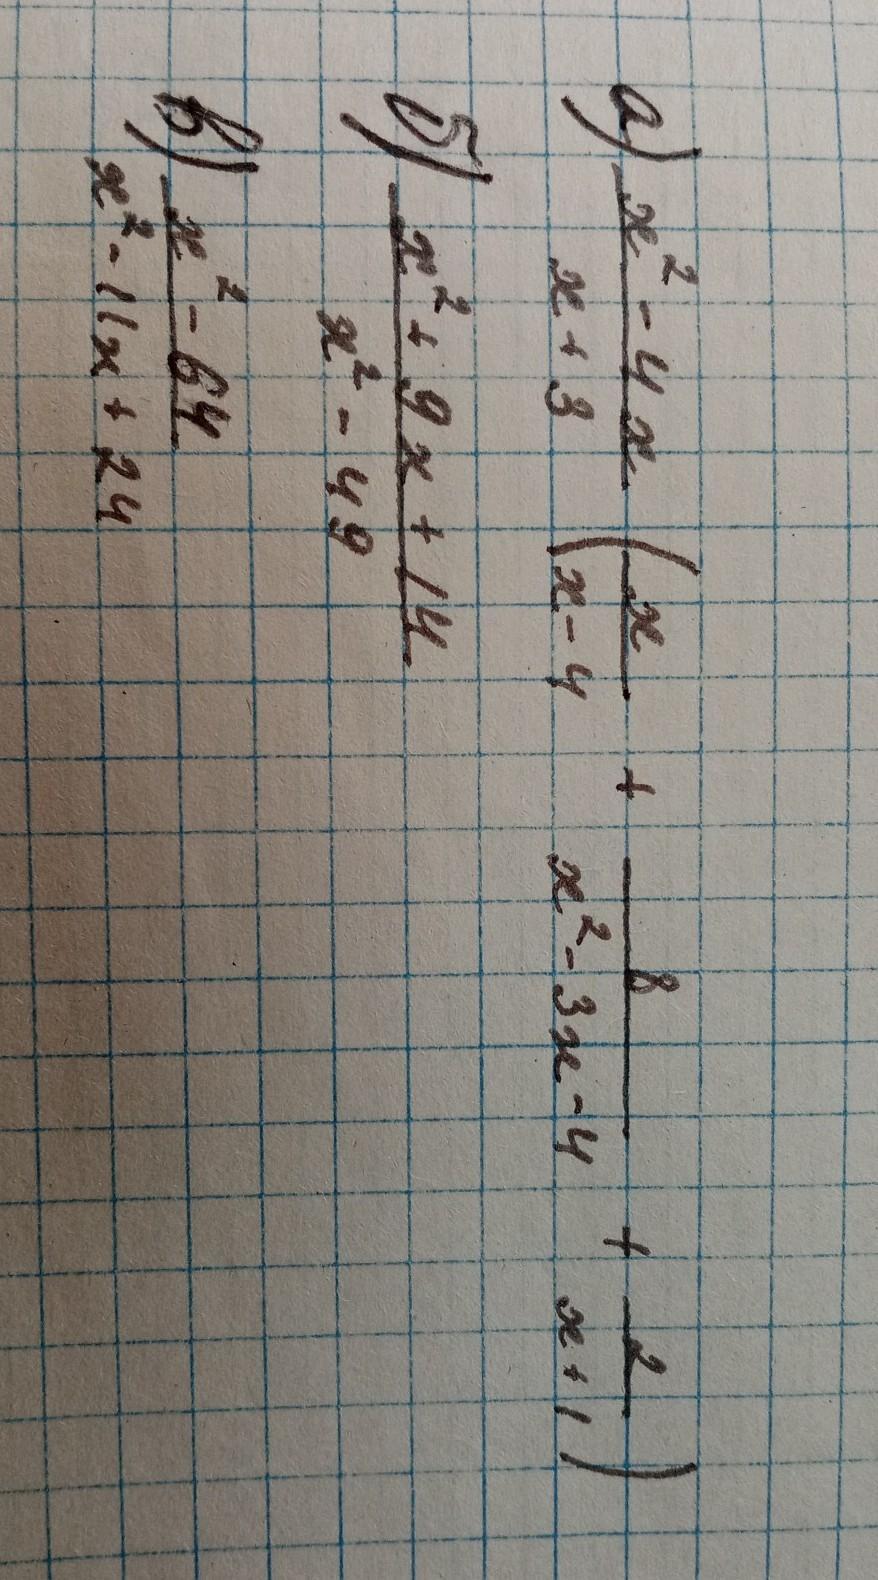 а) x² - 4x / x + 3 ( x / x - 4 + 8 / x² - 3x - 4 + 2 / x + 1 )
б) x² + 9x + 14 / x² - 49
в) x² - 64 / x² - 11x + 24